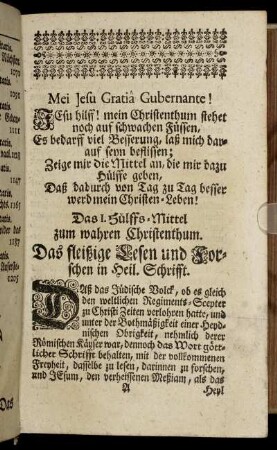 Mei Jesu Gratiâ Gubernante!
JEsu hilff! mein Christenthum stehet
noch auf schwachen Füssen,
Es bedarff viel Besserung, laß mich dar-
auf seyn beflissen;
Zeige mir die Mittel an, die mir dazu
Hülffe geben,
Daß dadurch von Tag zu Tag besser
werd mein Christen-Leben!
Das I. Hülffs-Mittel
zum wahren Christenthum.
Das fleißige Lesen und For-
schen in Heil. Schrifft.
Daß das Jüdische Volck, ob es gleich
den weltlichen Regiments-Scepter
zu Christi Zeiten verlohren hatte, und
unter der Bothmäßigkeit einer Heyd-
nischen Obrigkeit, nehmlich derer
Römischen Käyser war, dennoch das Wort gött-
licher Schrifft behalten, mit der vollkommenen
Freyheit, dasselbe zu lesen, darinnen zu forschen,
und JEsum, den verheissenen Meßiam, als das
A
Heyl
Das